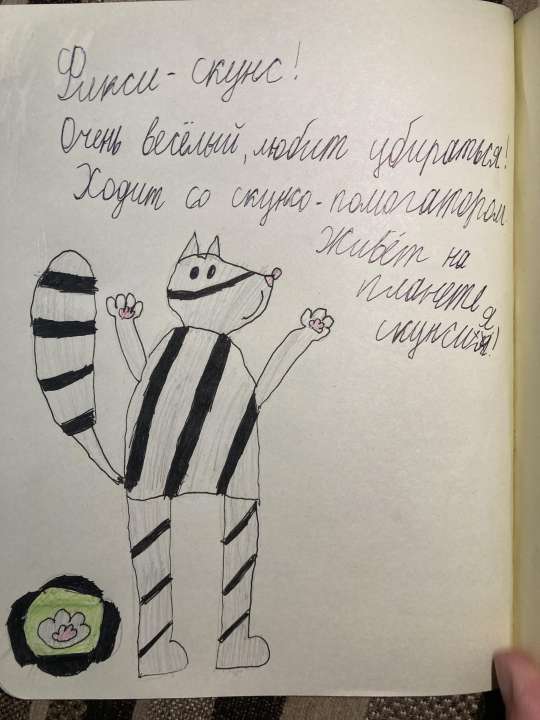 Фикси-скунс!
Очень весёлый, любит убираться!
Ходит со скунсо-помогатором
Живёт на
планете
скунсия!